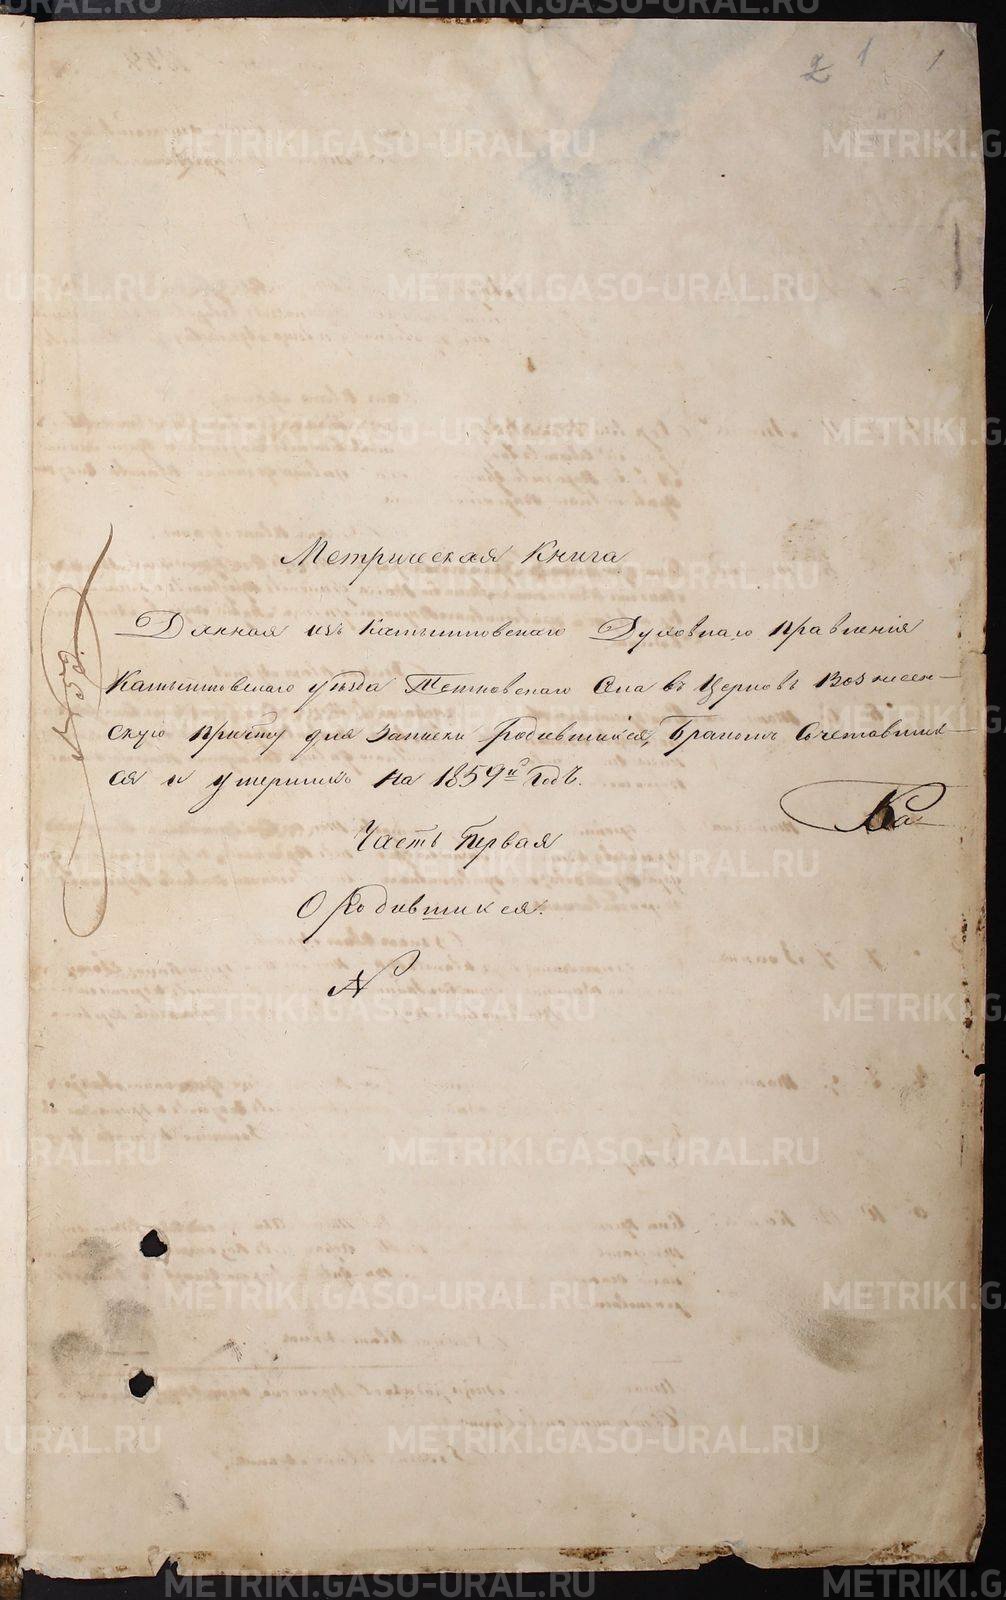 2 1 1
Метрическая Книга
Данная изъ Камышловскаго Духовнаго правленія
Камышловскаго уѣзда Тетковскаго Села въ Церковь Вознесен-
скую причту для записки Родившихся, Бракомъ Сочетавших-
ся и умершихъ на 1859й Годъ.
Часть Первая
О Родившихся.
METRIKI.GASO-URAL.RU